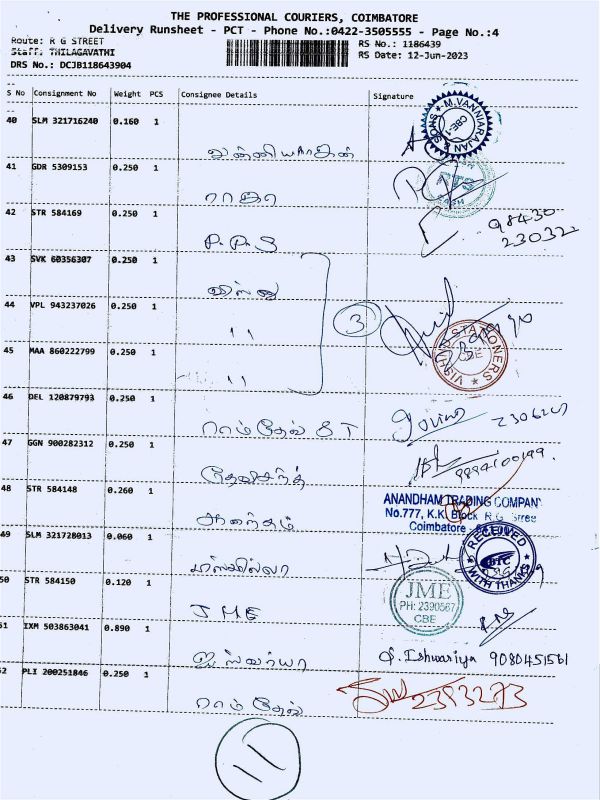 THE PROFESSIONAL COURIERS, COIMBATORE
Delivery Runsheet - PCT - Phone No.:0422-3505555 - Page No.:4
Route: R G STREET
Staff: THILAGAVATHI
DRS No.: DCJB118643904
RS No.: 1186439
RS Date: 12-Jun-2023
S No Consignment No Weight PCS Consignee Details Signature
40 SLM 321716240 0.160 1
M.VANNIARAJAN & SONS CBE-1
வன்னியராஜன்
41 GDR 5309153 0.250 1
ராஜா
42 STR 584169 0.250 1
P.P.S
98430
230322
43 SVK 60356307 0.250 1
விஷ்ணு
44 VPL 943237026 0.250 1
11
3
45 MAA 860222799 0.250 1
11
STATIONERS CBE
46 DEL 120879793 0.250 1
ராம்தேவ் S T
47 GGN 900282312 0.250 1
9894100199.
48 STR 584148 0.260 1
ANANDHAM TRADING COMPANY
No.777, K.K. Block R G Stree
Coimbatore
ஆனந்தம்
49 SLM 321728013 0.060 1
RECEIVED WITH THANKS
பிஸ்மில்லா
50 STR 584150 0.120 1
JME
PH: 2390567
CBE
JME
51 IXM 503863041 0.890 1
ஐஸ்வர்யா
Ishwariya 9080451561
52 PLI 200251846 0.250 1
ராம்தேவ்
2383273
11